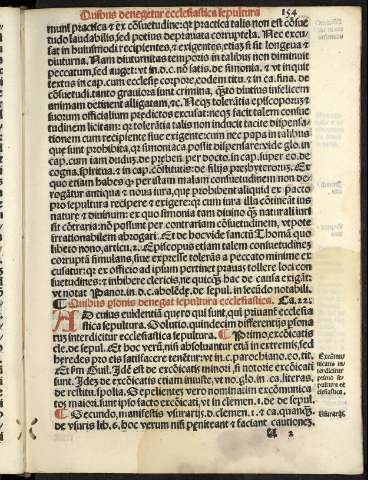 Quibus denegetur ecclesiastica sepultura 154
muni practica & ex cōsuetudine: qr practica talis non est cōsue
tudo laudabilis, sed potius deprauata corruptela. Nec excu
sat in huiusmodi recipientes, & exigentes, etiā si sit longeua &
diuturna. Nam diuturnitas temporis in talibus non diminuit
peccatum, sed auget: vt in.d.c. nō satis. de simonia. & vt inquit
textus in cap. cum ecclesię corpore, eodem titu. & in ca. fina. de
cōsuetudi. tanto grauiora sunt crimina, quāto diutius infelicem
animam detinent alligatam, &c. Neqʒ tolerātia episcoporum &
suorum officialium prędictos excusat: necqʒ facit talem consue
tudinem licitam: qr tolerātia talis non inducit tacite dispensa-
tionem cum recipiente siue exigente: cum nec papa in talibus
quę sunt prohibita, qr simoniaca, possit dispensare: vide glo. in
cap. cum iam dudum. de pręben. per docto. in cap. super eo. de
cogna. spiritua. & in cap. cōstitutis: de filijs presbyterorum. Ex
quo etiam habes qr per istam malam consuetudinem non de-
rogātur antiqua & noua iura, quę prohibent aliquid ex pacto
pro sepultura recipere & exigere: qr cum iura illa cōtineāt ius
naturę & diuinum: ex quo simonia tam diuino qʒ naturali iuri
sit cōtraria: nō possunt per contrariam cōsuetudinem, vtpote
irrationabilem abrogari. Et de hoc vide sanctū Thomā quo
libeto nono, articu. 2. Episcopus etiam talem consuetudinēz
corruptā simulans, siue expresse tolerās a peccato minime ex
cusatur: qr ex officio ad ipsum pertinet prauas tollere loci con
suetudines: & inhibere clericis, ne quicqʒ hac de causa exigāt:
vt notat Panor. in.d.c. abolēdę. de sepul. in secūdo notabili.
¶ Quibus psonis denegat sepultura ecclesiastica. Ca. 22.
AD cuius euidentiā quęro qui sunt, qui priuant ecclesia
stica sepultura. Solutio. quindecim differentijs psona
rum interdicitur ecclesiastica sepultura. ¶ Primo, excōicatis
cle. de sepul. Et hoc verū, nisi absoluantur etiā in extremis, sed
heredes pro eis satisfacere tenētur: vt in.c. parochiano. eo. tit.
Et fm Guil. Idē est de excōicatis minori, si notorie excōicati
sunt. Idez de excōicatis etiam iniuste, vt no. glo. in ca. literas.
de restitu. spolia. Sepelientes vero nominatim excōmunica-
tos maiori. sunt ipso facto excōicati, vt in clemen. 1. de de sepul.
¶ Secundo, manifestis vsurarijs. d. clemen. 1. & ca. quanqʒ.
de vsuris lib. 6. hoc verum nisi pęniteant & faciant cautionem
Excōmu
nicatis in
terdicitur
ecclesiastica.
Vsurarijs.